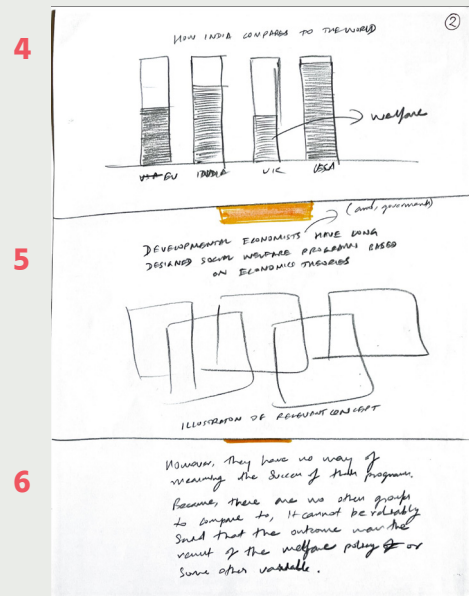 2
4
HOW INDIA COMPARES TO THE WORLD
welfare
EU INDIA UK USA
(and, governments)
5
DEVELOPMENTAL ECONOMISTS HAVE LONG
DESIGNED SOCIAL WELFARE PROGRAMS BASED
ON ECONOMICS THEORIES
ILLUSTRATION OF RELEVANT CONCEPT
6
However, they have no way of
measuring the success of their programs.
Because, there are no other groups
to compare to, it cannot be reliably
said that the outcome was the
result of the welfare policy or
some other variable.